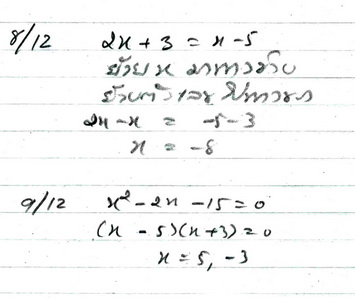 8/12 2x + 3 = x - 5
ย้าย x มาทางซ้าย
ย้ายตัวเลขไปทางขวา
2x - x = -5 - 3
x = -8
9/12 x² - 2x - 15 = 0
(x - 5)(x + 3) = 0
x = 5, -3